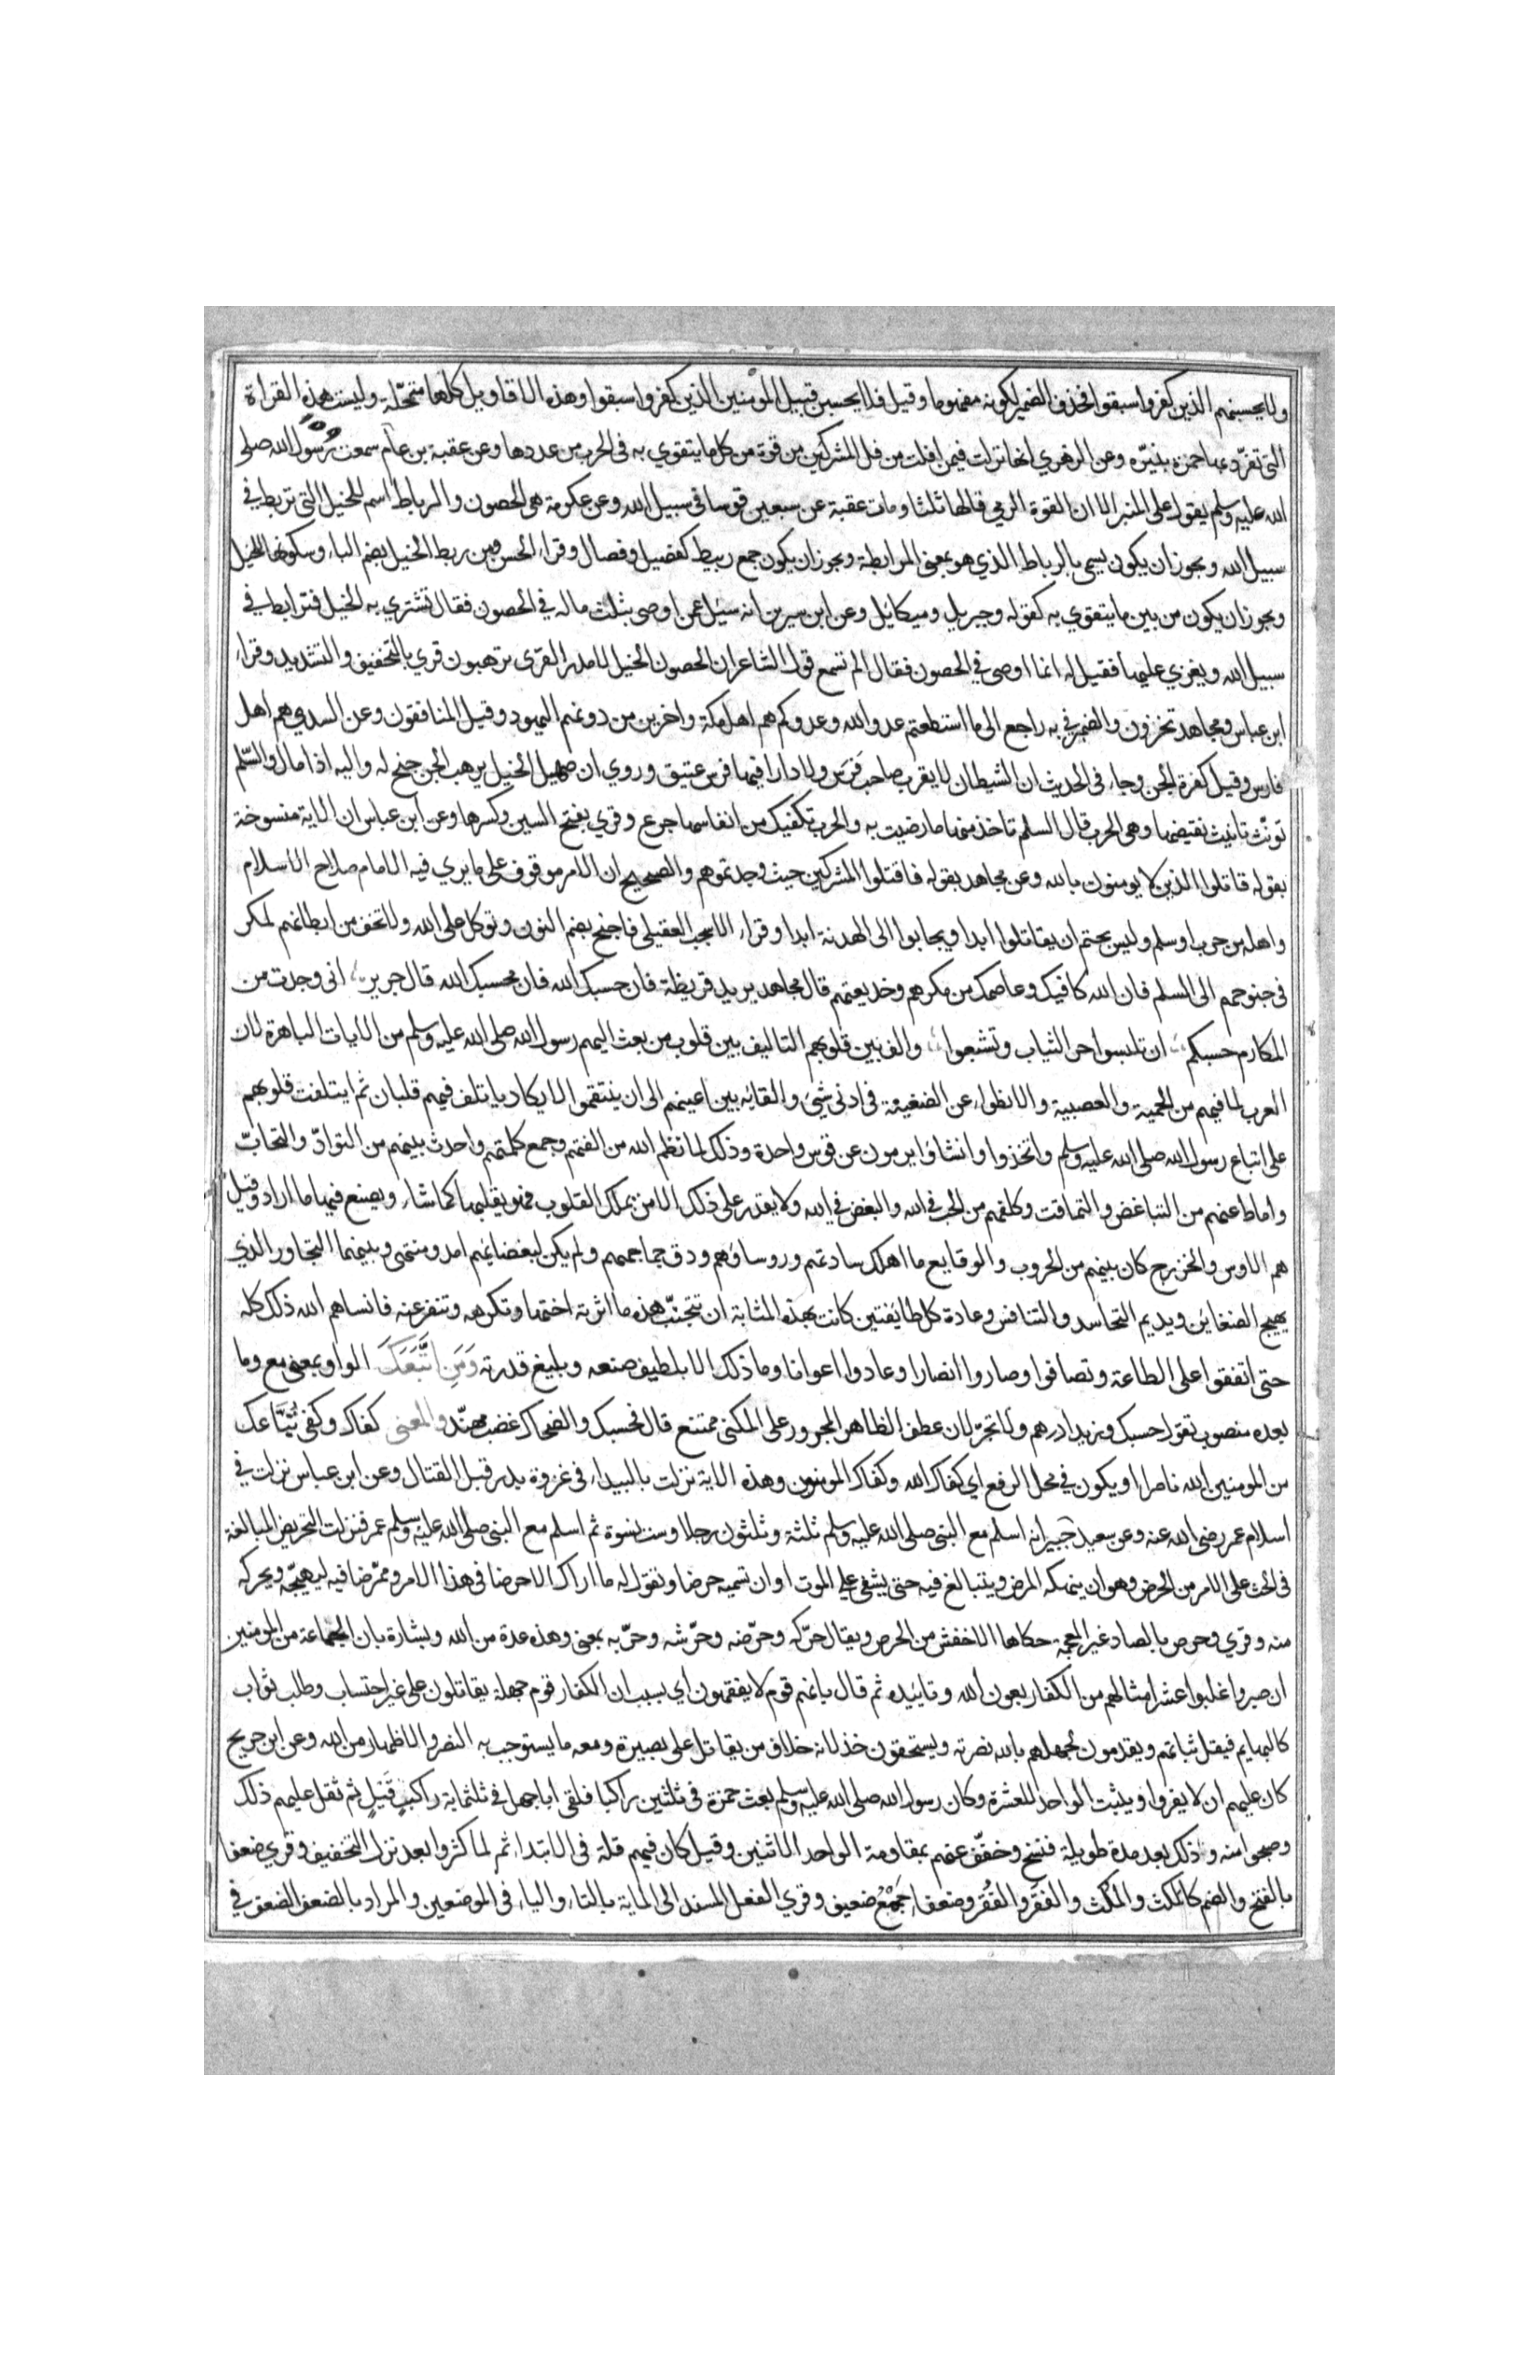 ولا يحسبنهم الذين كفروا سبقوا فحذف الضمير لكونه مفهوما وقيل فلا يحسبن قبيل المؤمنين الذين كفروا سبقوا وهذه الاقاويل كلها متمحلة وليست هذه القراة
التى تفرد بها حمزة بنيرة وعن الزهري انها نزلت فيمن افلت من فل المشركين من قوة من كل ما يتقوي به فى الحرب من عددها وعن عقبة بن عامر سمعت رسول الله صلى
الله عليه وسلم يقول على المنبر الا ان القوة الرمي قالها ثلثا ومات عقبة عن سبعين قوسا فى سبيل الله وعن عكرمة هى الحصون والرباط اسم للخيل التى تربط فى
سبيل الله ويجوز ان يكون يسمى بالرباط الذي هو بمعنى المرابطة ويجوز ان يكون جمع ربيط كفصيل وفصال وقراء الحسن ومن ربط الخيل بضم الباء وسكونها الخيل
ويجوز ان يكون من بين ما يتقوي به كقوله وجبريل وميكائل وعن ابن سيرين انه سئل عمن اوصى بثلث ماله فى الحصون فقال تشتري به الخيل فترابط فى
سبيل الله ويغزي عليها فقيل له انما اوصى فى الحصون فقال الم تسمع قول الشاعر ان الحصون الخيل لا مدر القرى ترهبون قري بالتخفيف والتشديد وقراء
ابن عباس ومجاهد تخزون والضمير فى به راجع الى ما استطعتم عدو الله وعدوكم هم اهل مكة واخرين من دونهم اليهود وقيل المنافقون وعن السدي هم اهل
فارس وقيل كفرة الجن وجاء فى الحديث ان الشيطان لا يقرب صاحب فرس ولا دارا فيها فرس عتيق وروي ان صهيل الخيل يرهب الجن جنح له واليه اذا مال والسلم
تونث تانيث نقيضها وهى الحرب قال السلم تاخذ منها ما رضيت به والحرب تكفيك من انفاسها جرع وقري بفتح السين وكسرها وعن ابن عباس ان الاية منسوخة
بقوله قاتلوا الذين لا يومنون بالله وعن مجاهد بقوله فاقتلوا المشركين حيث وجدتموهم والصحيح ان الامر موقوف على ما يري فيه الامام صلاح الاسلام
واهله من حرب او سلم وليس بحتم ان يقاتلوا ابدا ويجابوا الى الهدنة ابدا وقراء الاشهب العقيلى فاجنح بضم النون وتوكل على الله ولا تخف من ابطانهم لمكر
فى جنوحهم الى السلم فان الله كافيك وعاصمك من مكرهم وخديعتهم قال مجاهد يريد قريظة فان حسبك الله فان محسبك الله قال جرير انى وجدت من
المكارم حسبكم ان تلبسوا حر الثياب وتشبعوا والف بين قلوبهم التاليف بين قلوب من بعث اليهم رسول الله صلى الله عليه وسلم من الآيات الباهرة لان
العرب لما فيهم من الحمية والعصبية والانطواء عن الضغينة فى ادنى شيئ والقائه بين اعينهم الى ان ينتقموا لا يكاد ياتلف فيهم قلبان ثم ايتلفت قلوبهم
على اتباع رسول الله صلى الله عليه وسلم واتخذوا وانشاوا يرمون عن قوس واحدة وذلك لما نظم الله من الفتهم وجمع كلمتهم واحدث بينهم من التوادّ والتحابّ
واماط عنهم من التباغض والتماقت وكلفهم من الحب فى الله والبغض فى الله ولا يقدر على ذلك الا من يملك القلوب فهو يقلبها كما شاء ويصنع فيها ما اراد وقيل
هم الاوس والخزرج كان بينهم من الحروب والوقايع ما اهلك سادتهم وروساؤهم ودق جماجمهم ولم يكن لبغضائهم امد ومنتهى وبينهما التجاور الذي
يهيج الضغاين ويديم التحاسد والتنافس وعادة كل طايفتين كانت بهذه المثابة ان تتجنب هذه ما اثرته اختها وتكرهه وتنفر عنه فانساهم الله ذلك كله
حتى اتفقوا على الطاعة وتصافوا وصاروا انصارا وعادوا اعوانا وما ذلك الا بلطيف صنعه وبليغ قدرته وَمَنِ اتَّبَعَكَ الواو بمعنى مع وما
بعده منصوب تقول حسبك وزيدا درهم ولا تجر لان عطف الظاهر المجرور على المكنى ممتنع قال فحسبك والضحاك عضب مهنّد والمعنى كفاك وكفى تُبَّاعك
من المومنين الله ناصرا او يكون فى محل الرفع اي كفاك الله وكفاك المومنون وهذه الاية نزلت بالبيداء فى غزوة بدر قبل القتال وعن ابن عباس نزلت فى
اسلام عمر رضى الله عنه وعن سعيد جبير انه اسلم مع النبى صلى الله عليه وسلم ثلثة وثلثون رجلا وست نسوة ثم اسلم مع النبى صلى الله عليه وسلم عمر فنزلت التحريض المبالغة
فى الحث على الامر من الحرض وهو ان ينهكه المرض ويتبالغ فيه حتى يشفى على الموت او ان تسميه حرضا وتقول له ما اراك الا حرضا فى هذا الامر وممرّضا فيه ليهيجّه ويحركه
منه وقري وحرص بالصاد غير المعجمة حكاها الاخفش من الحرص ويقال حرّكه وحرّضه وحرّشه وحرّبه بمعنى وهذه عدة من الله وبشارة بان الجماعة من المومنين
ان صبروا غلبوا عشرا مثالهم من الكفار بعون الله وتاييده ثم قال بانهم قوم لا يفقهون اي بسبب ان الكفار قوم جهلة يقاتلون على غير احتساب وطلب ثواب
كالبهايم فيقل ثباتهم ويقدمون لجهلهم بالله نصرته ويستحقون خذلانه خلاف من يقاتل على بصيرة ومعه ما يستوجب به النصر والاظهار من الله وعن ابن جريح
كان عليهم ان لا يفروا ويثبت الواحد للعشرة وكان رسول الله صلى الله عليه وسلم بعث حمزة فى ثلثين راكبا فلقى ابا جهل فى ثلثماية راكب قيل ثم ثقل عليهم ذلك
وضجوا منه وذلك بعد مدة طويلة فنسخ وخفّف عنهم بمقاومة الواحد الاثنين وقيل كان فيهم قلة فى الابتداء ثم لما كثروا بعد نزل التخفيف وقري ضعفا
بالفتح والضم كالمكث والمُكث والفَقر والفُقر وضعفاء جَمْعُ ضعيف وقري الفعل المسند الى الماية بالتاء والياء فى الموضعين والمراد بالضعف الضعف فى